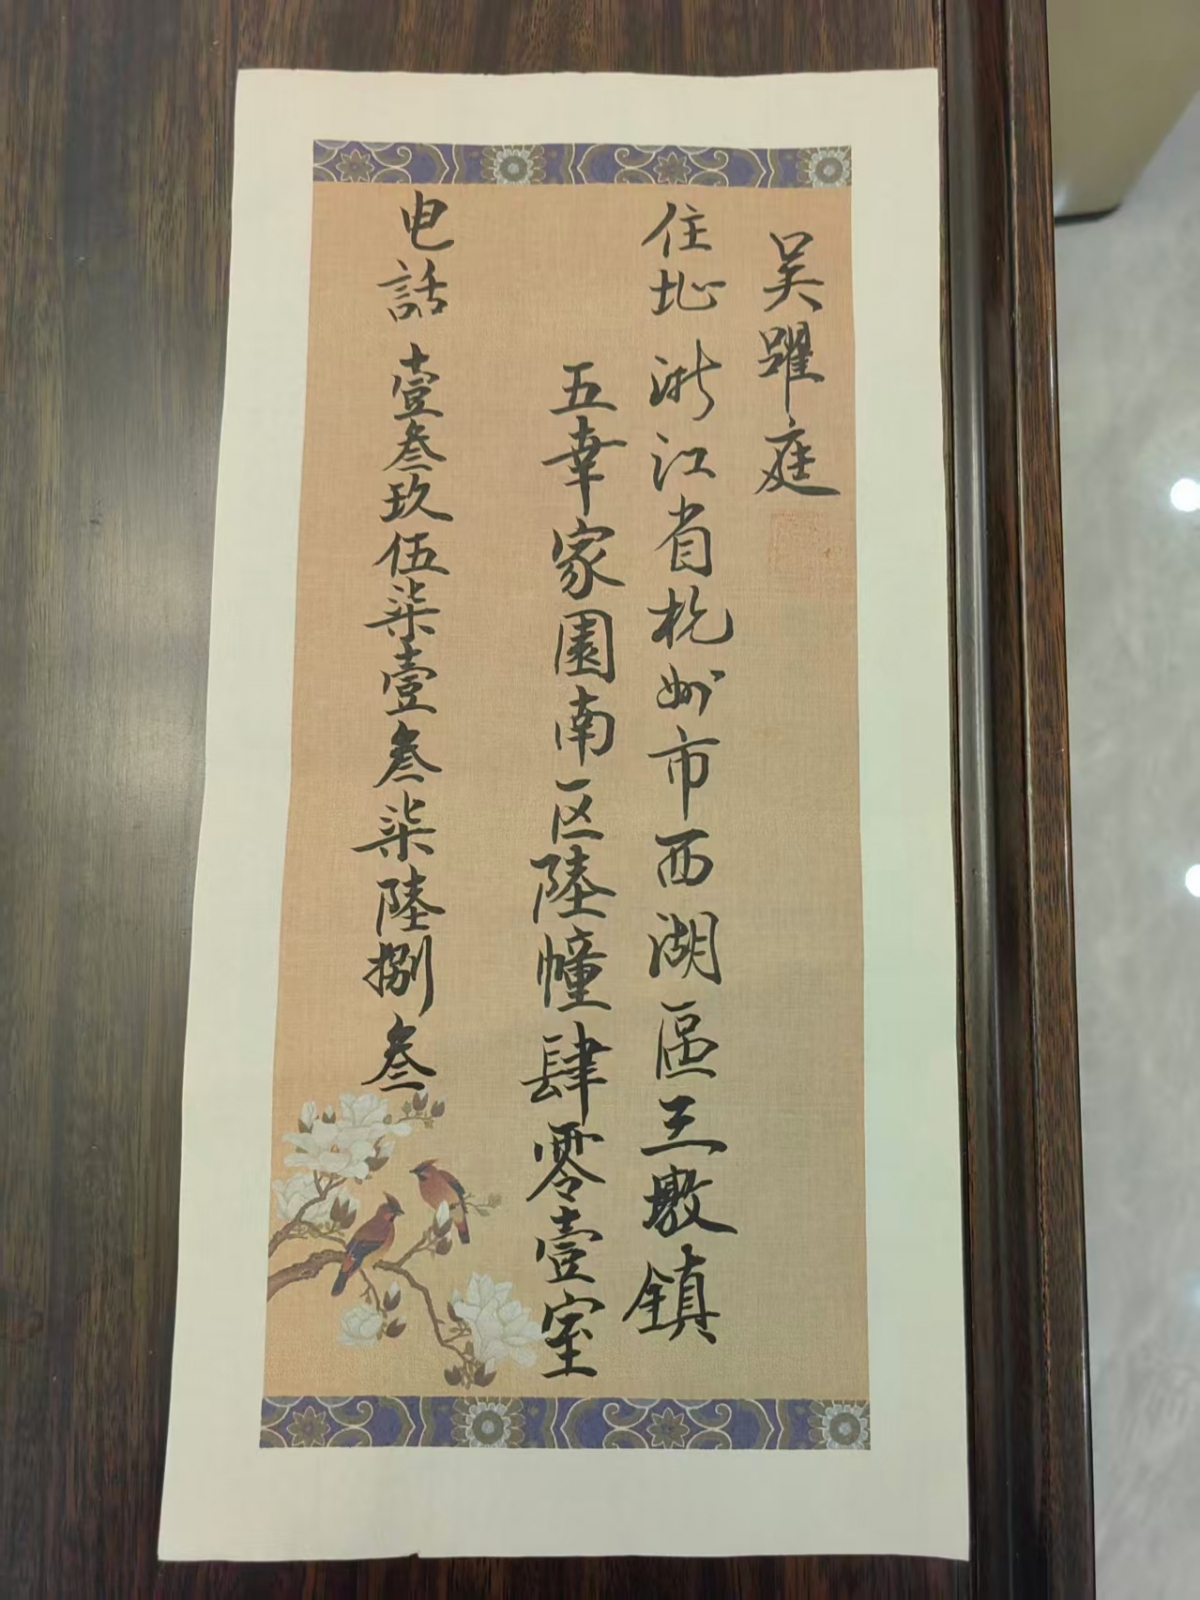 吴躍庭
住址 浙江省杭州市西湖區三墩鎮
五幸家園南区陸幢肆零壹室
电話 壹叁玖伍柒壹叁柒陸捌叁